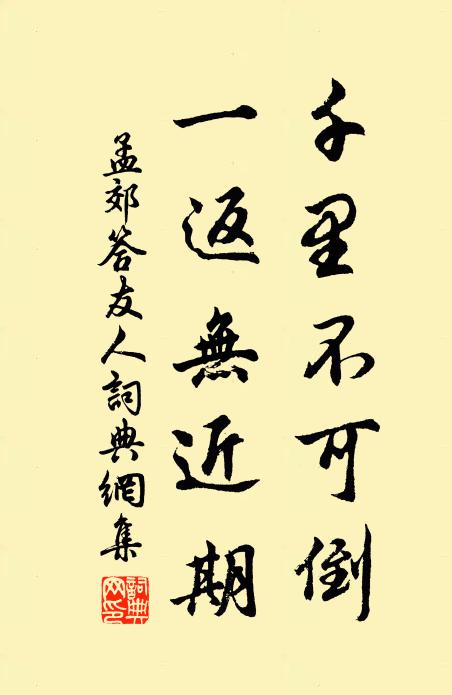 千里不可倒
一返無近期
孟郊答友人詞典網集
詞典網印